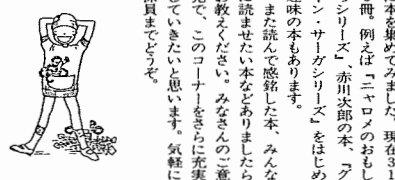 本を集めてみました。現在31
冊。例えば『ニャロメのおもし
シリーズ』、赤川次郎の本、『グ
ン・サーガシリーズ』をはじめ
趣味の本もあります。
また読んで感銘した本、みんな
読ませたい本などありましたら
教えください。みなさんのご意
で、このコーナーをさらに充実
していきたいと思います。気軽に
係員までどうぞ。